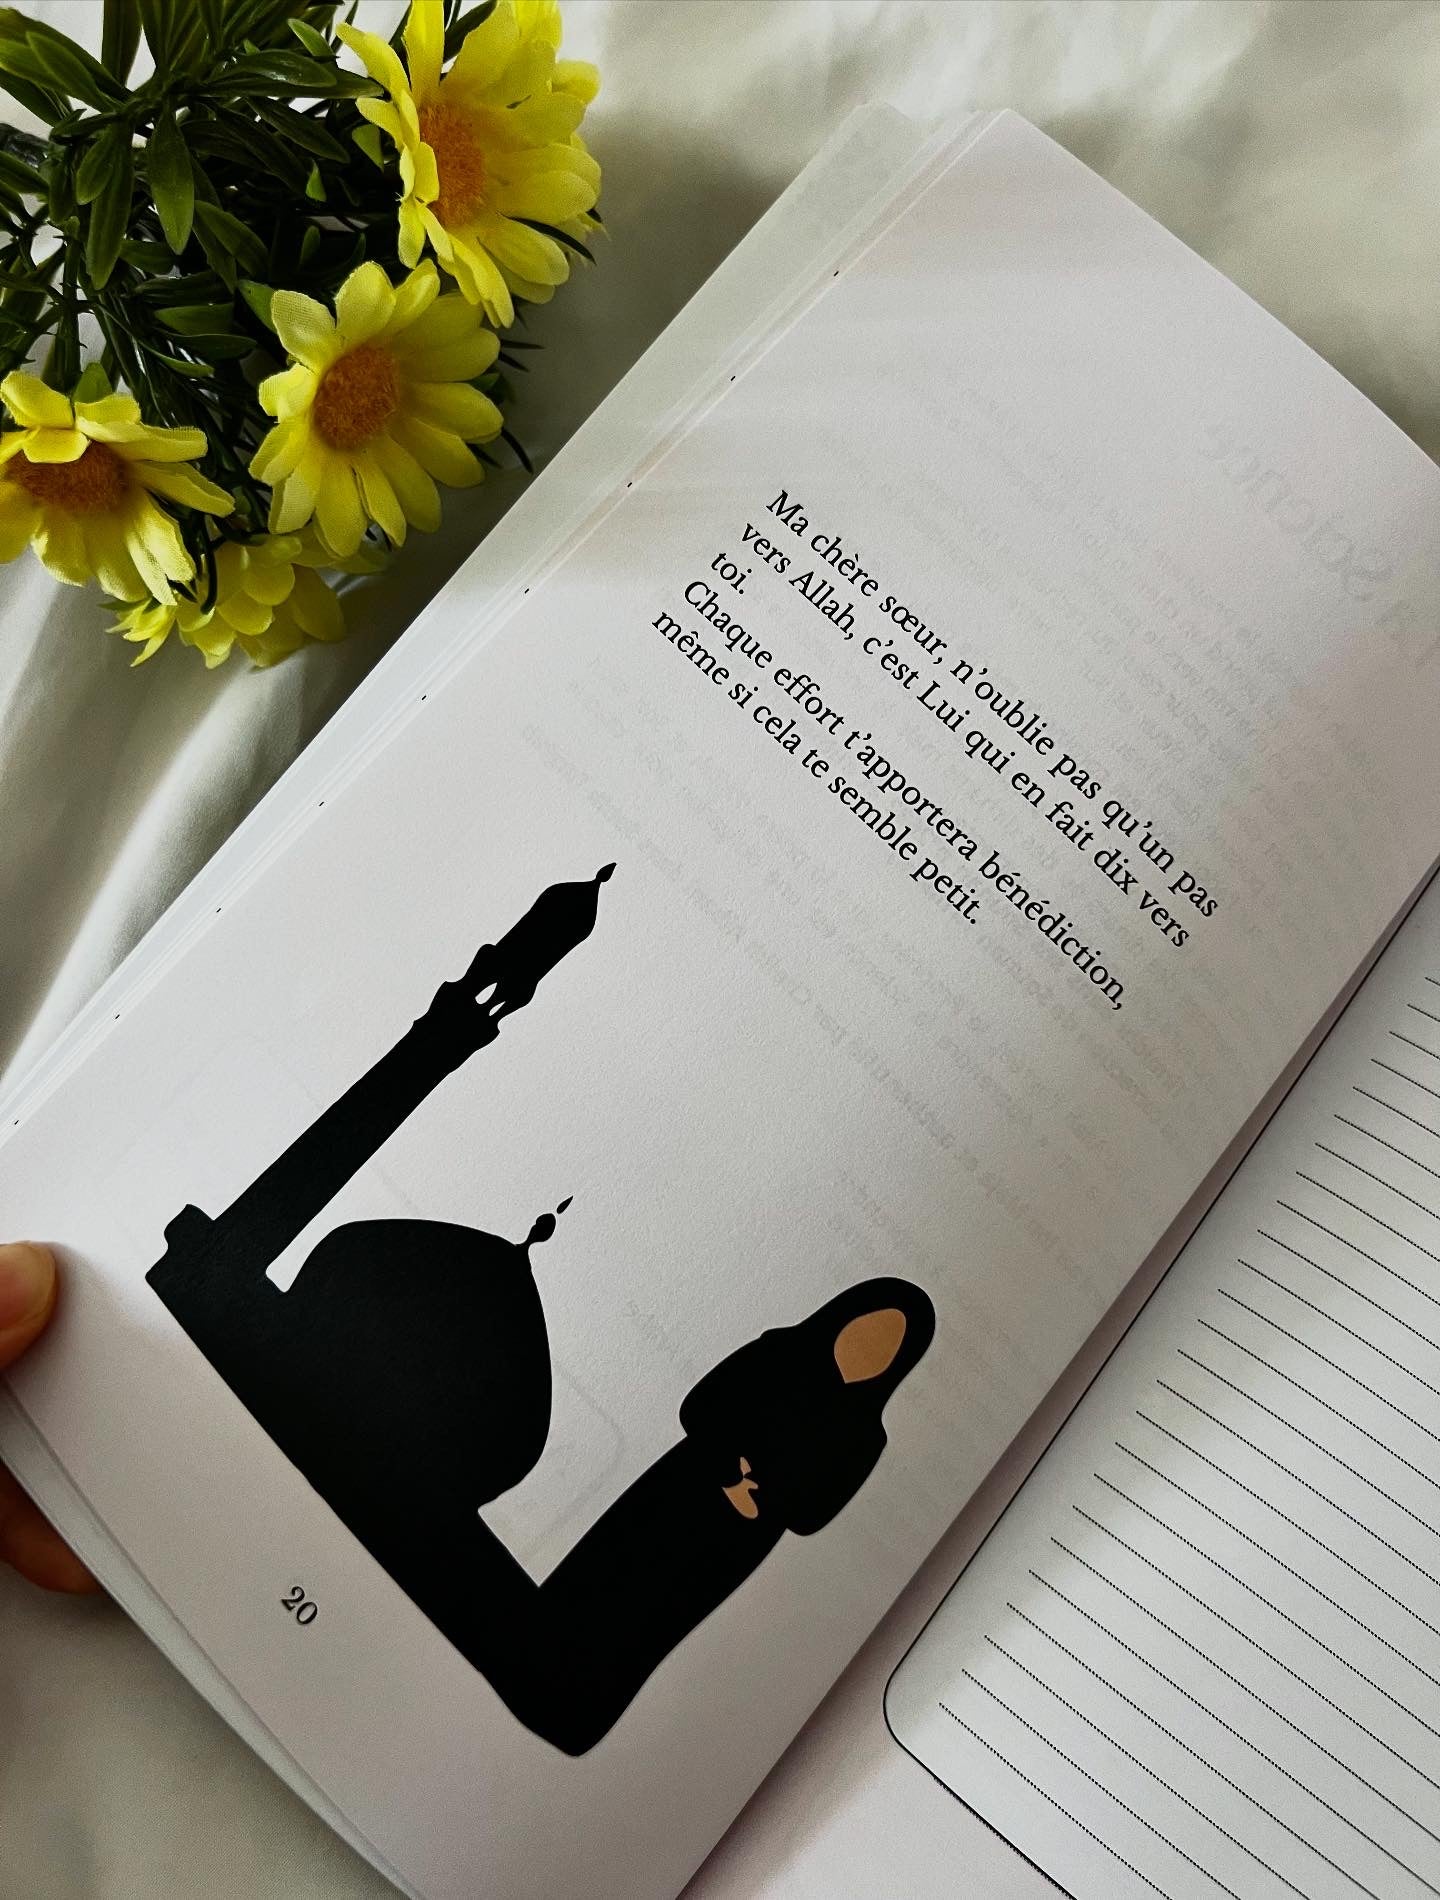 Ma chère sœur, n'oublie pas qu'un pas
vers Allah, c'est Lui qui en fait dix vers
toi.
Chaque effort t'apportera bénédiction,
même si cela te semble petit.
20